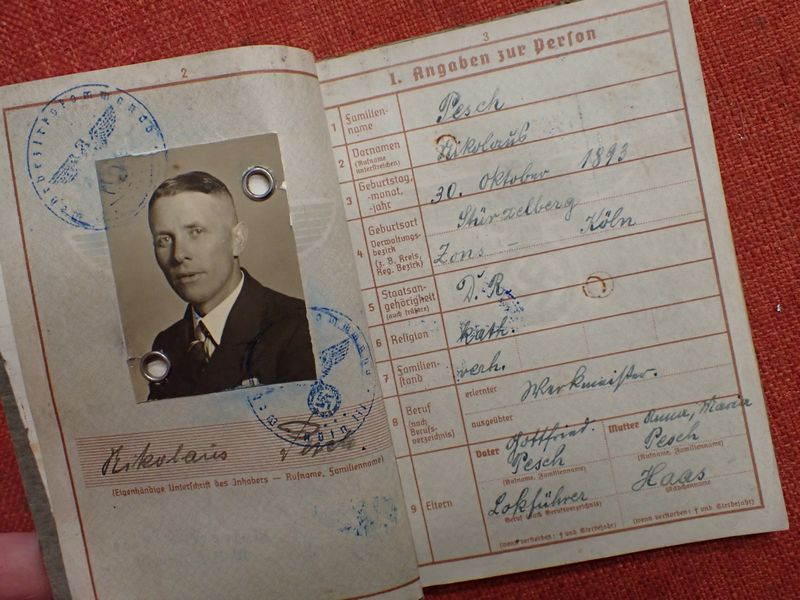 2
Wehrbezirkskommando
Nikolaus Pesch.
(Eigenhändige Unterschrift des Inhabers — Rufname, Familienname)
3
I. Angaben zur Person
1 Familienname Pesch
2 Vornamen (Rufname unterstreichen) Nikolaus
3 Geburtstag, -monat, -jahr 30. Oktober 1893
4 Geburtsort Stürzelberg
Verwaltungsbezirk (z. B. Kreis, Reg. Bezirk) Zons — Köln
5 Staatsangehörigkeit (auch frühere) D. R.
6 Religion kath.
7 Familienstand verh.
8 Beruf (nach Berufsverzeichnis) erlernter Werkmeister.
ausgeübter
9 Eltern
Vater Gottfried.
Pesch
(Rufname, Familienname)
Lokführer
Beruf (nach Berufsverzeichnis)
(wenn verstorben: † und Sterbejahr)
Mutter Anna, Maria
Pesch
(Rufname, Familienname)
Haas
Mädchenname
(wenn verstorben: † und Sterbejahr)